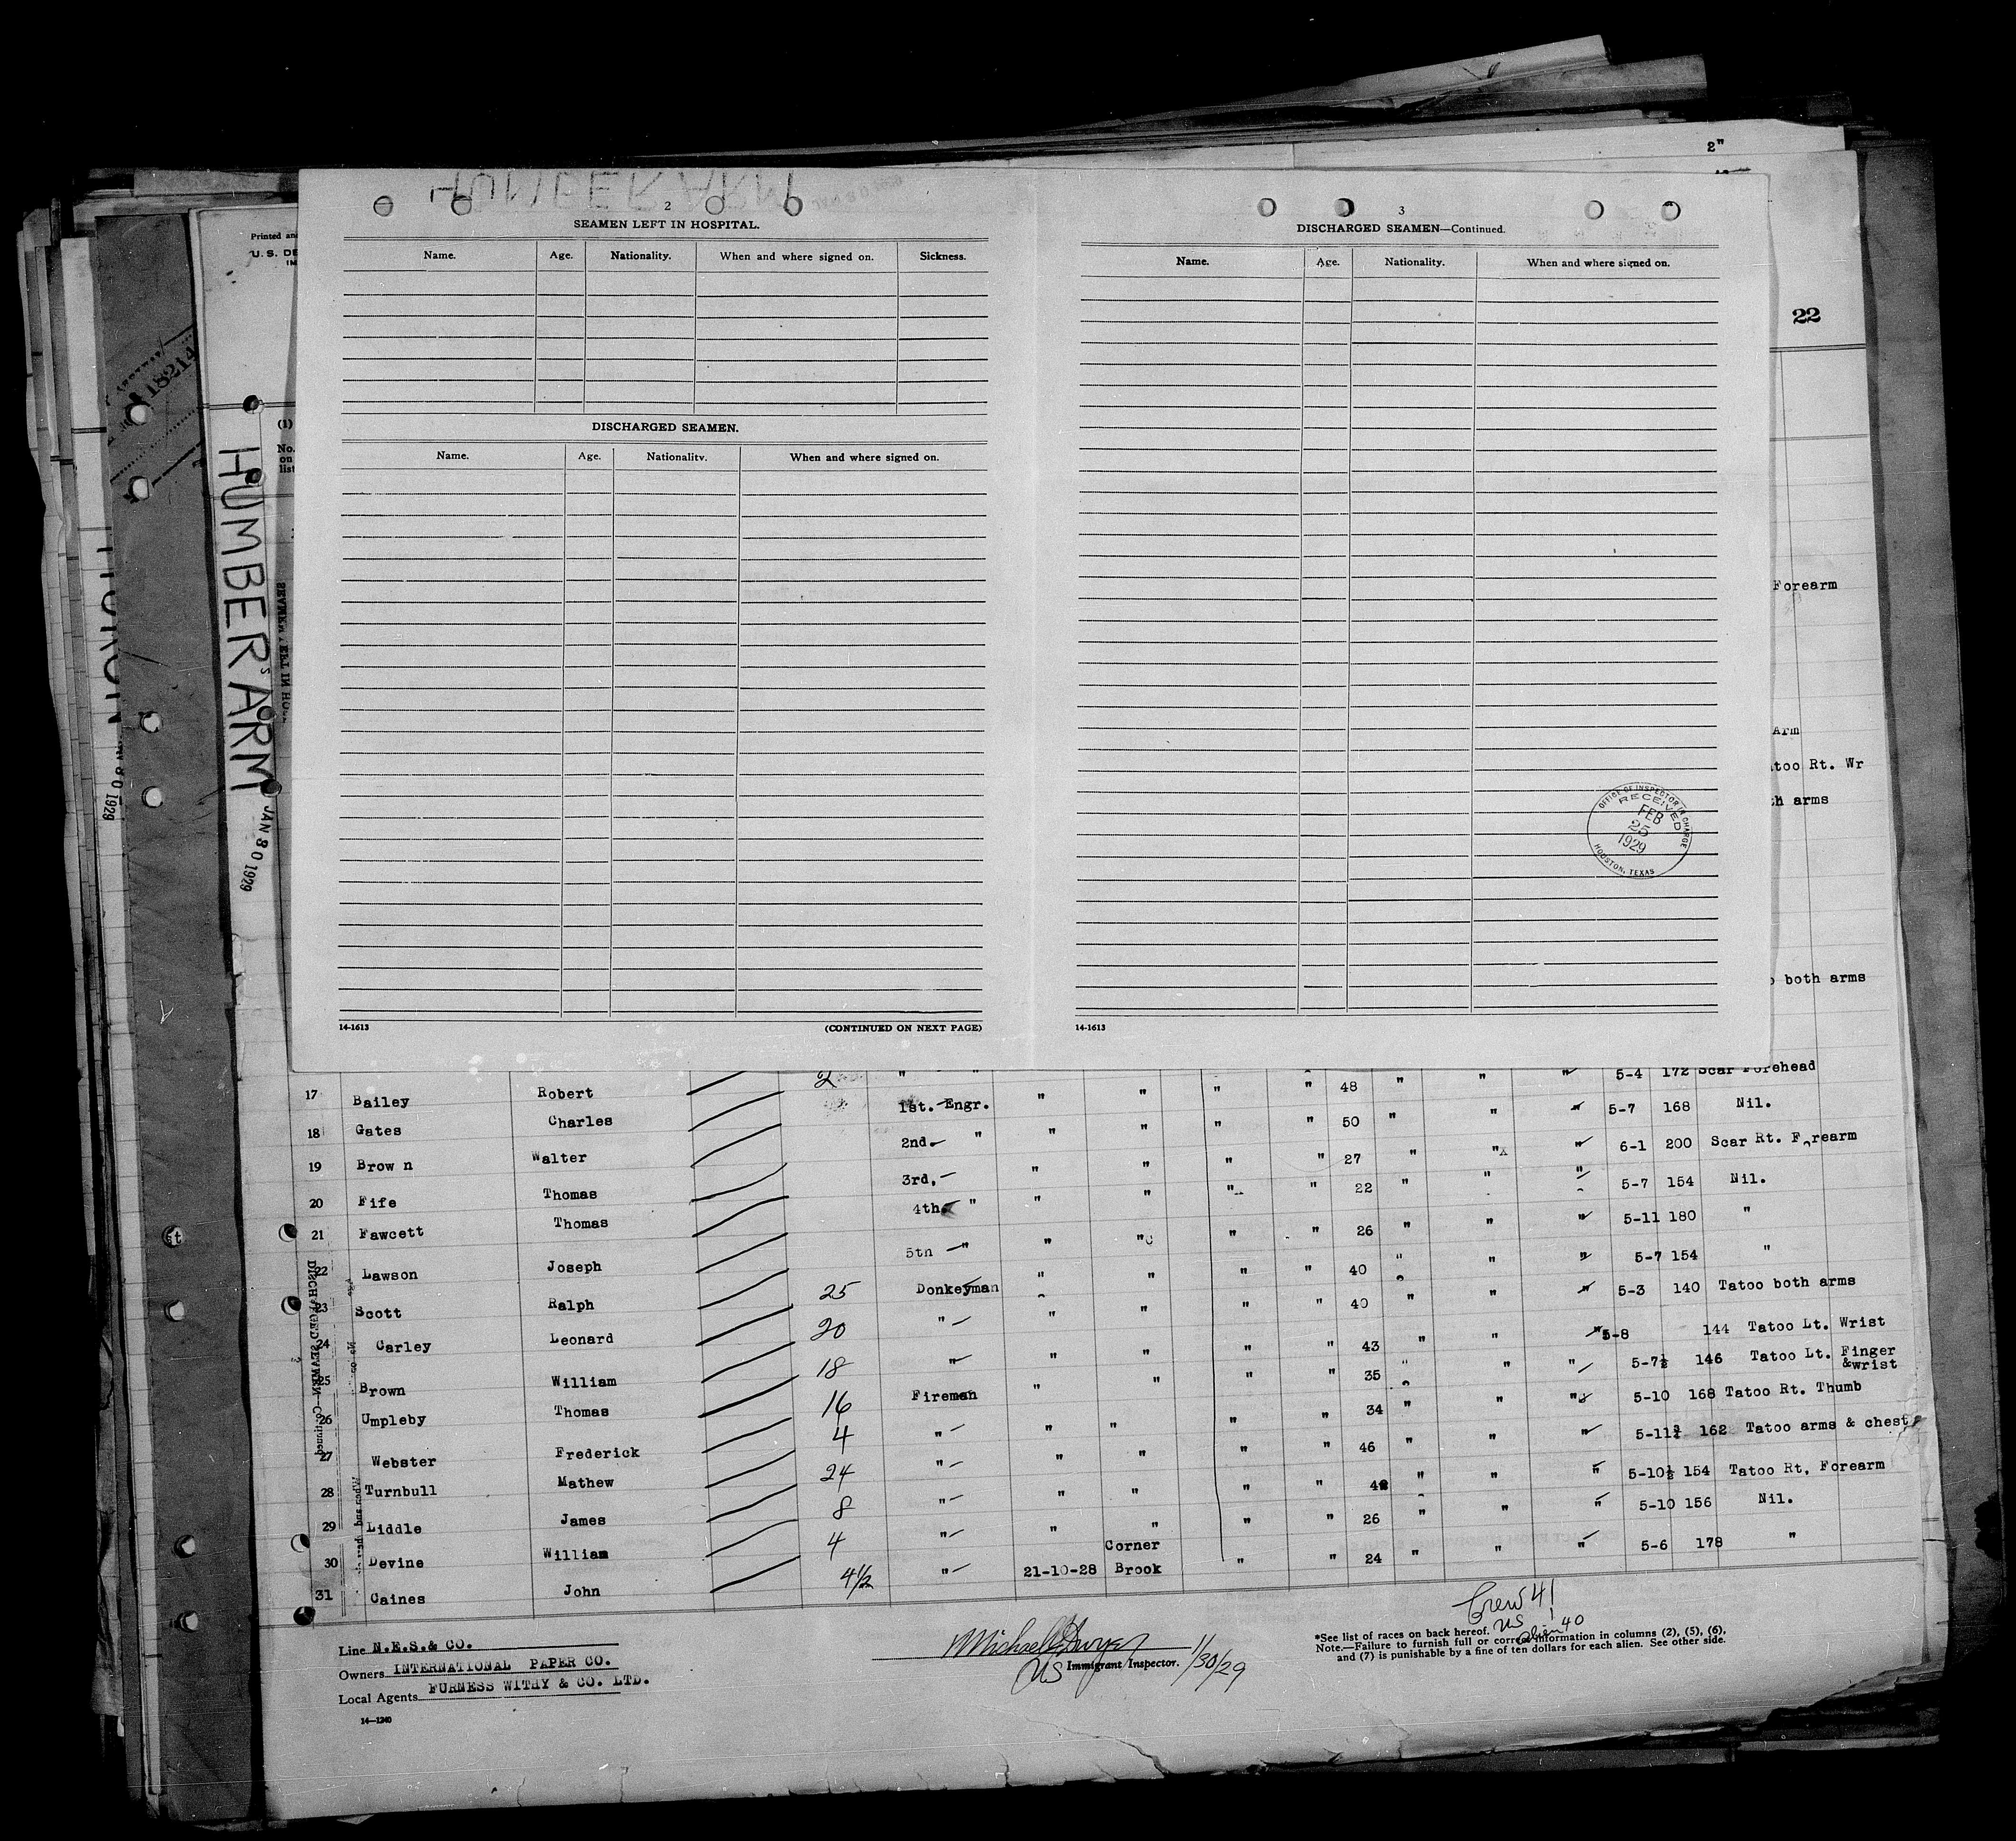 2"
22
Printed an
U. S. DE
IM
(1)
No.
on
list
18214
HUMBER ARM
JAN 30 1929
2
SEAMEN LEFT IN HOSPITAL.
Name. Age. Nationality. When and where signed on. Sickness.
DISCHARGED SEAMEN.
Name. Age. Nationality. When and where signed on.
14-1613 (CONTINUED ON NEXT PAGE)
3
DISCHARGED SEAMEN—Continued.
Name. Age. Nationality. When and where signed on.
OFFICE OF INSPECTOR IN CHARGE
RECEIVED
FEB
25
1929
HOUSTON, TEXAS
14-1613
Forearm
Arm
too Rt. Wr
h arms
both arms
17 Bailey Robert 2 " " " 48 " " " 5-4 172 Scar Forehead
18 Gates Charles 1st. Engr. " " " " 50 " " " 5-7 168 Nil.
19 Brow n Walter 2nd. " " " " " 27 " " " 6-1 200 Scar Rt. Forearm
20 Fife Thomas 3rd. " " " " 22 " " " 5-7 154 Nil.
21 Fawcett Thomas 4th " " " " " 26 " " " 5-11 180 "
22 Lawson Joseph 5th " " " " " 40 " " " 5-7 154 "
23 Scott Ralph 25 Donkeyman " " " " 40 " " " 5-3 140 Tatoo both arms
24 Carley Leonard 20 " " " " " 43 " " " 5-8 144 Tatoo Lt. Wrist
25 Brown William 18 " " " " " 35 " " " 5-7½ 146 Tatoo Lt. Finger
&wrist
26 Umpleby Thomas 16 Fireman " " " " 34 " " " 5-10 168 Tatoo Rt. Thumb
27 Webster Frederick 4 " " " " " 46 " " " 5-11¾ 162 Tatoo arms & chest
28 Turnbull Mathew 24 " " " " " " " " 5-10½ 154 Tatoo Rt. Forearm
29 Liddle James 8 " " " " " 26 " " " 5-10 156 Nil.
30 Devine William 4 " " Corner
31 Caines John 4½ " 21-10-28 Brook " " 24 " " " 5-6 178 "
DISCHARGED SEAMEN—Continued
Line N.E.S.& CO.
Owners INTERNATIONAL PAPER CO.
Local Agents FURNESS WITHY & CO. LTD.
14—1240
Michael Dwyer
US Immigrant Inspector. 1/30/29
Crew 41
US 1
alien 40
*See list of races on back hereof.
Note.—Failure to furnish full or correct information in columns (2), (5), (6),
and (7) is punishable by a fine of ten dollars for each alien. See other side.